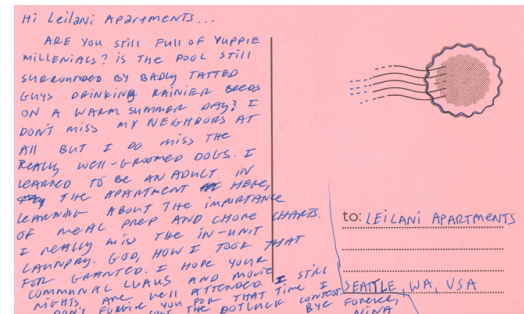 Hi Leilani Apartments...
ARE YOU STILL FULL OF YUPPIE
MILLENIALS? IS THE POOL STILL
SURROUNDED BY BADLY TATTED
GUYS DRINKING RAINIER BEERS
ON A WARM SUMMER DAY? I
DON'T MISS MY NEIGHBORS AT
All BUT I DO MISS THE
REALLY WELL-GROOMED DOGS. I
LEARNED TO BE AN ADULT IN
THE APARTMENT HERE,
LEARNING ABOUT THE IMPORTANCE
OF MEAL PREP AND CHORE CHARTS.
I REALLY MISS THE IN-UNIT
LAUNDRY. GOD, HOW I TOOK THAT
FOR GRANTED. I HOPE YOUR
COMMUNAL LUAUS AND MOVIE
NIGHTS ARE WELL ATTENDED. I STILL
DON'T FORGIVE YOU FOR THAT TIME I
THE POTLUCK CONTEST
BYE FOREVER,
NINA
to: LEILANI APARTMENTS
SEATTLE, WA, USA